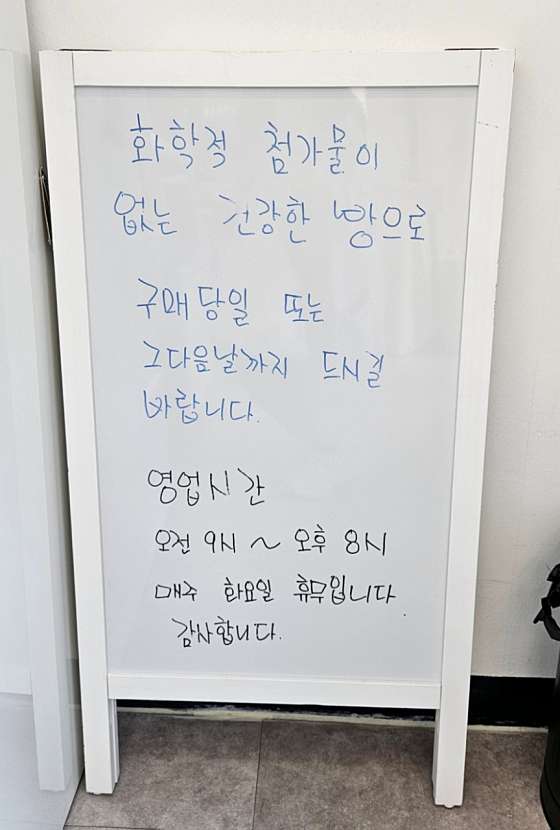 화학적 첨가물이
없는 건강한 빵으로
구매당일 또는
그다음날까지 드시길
바랍니다.
영업시간
오전 9시 ~ 오후 8시
매주 화요일 휴무입니다.
감사합니다.